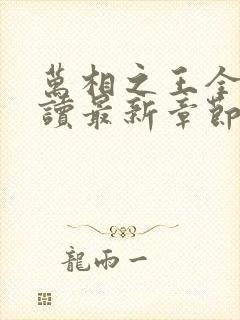 萬相之王全
讀最新章節
龍雨一